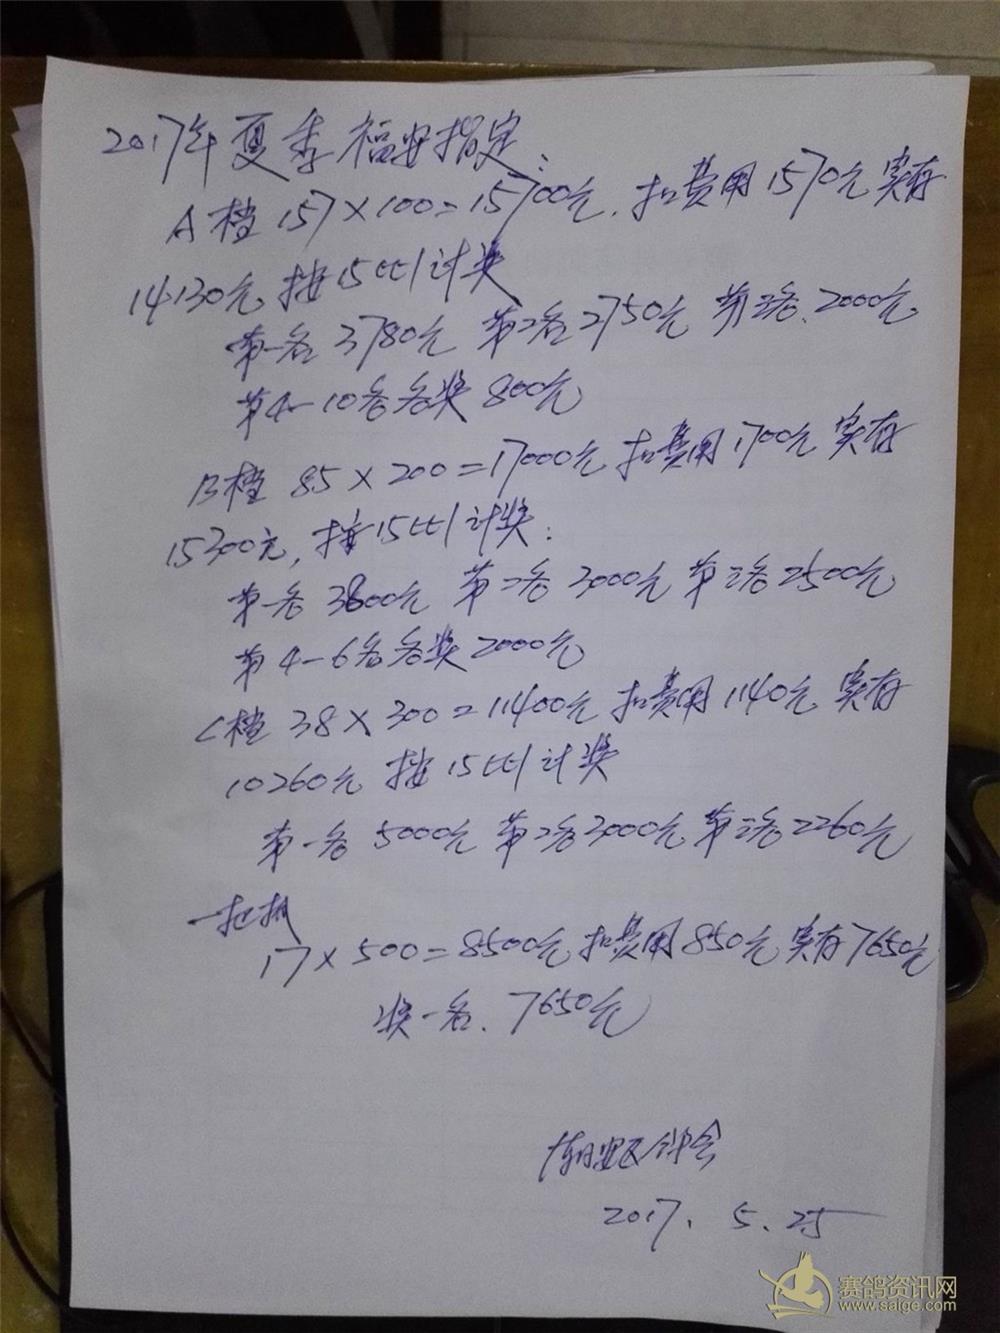 2017年夏季福安指定:
A档 157×100=15700元,扣费用1570元实存
14130元 按15比1计奖
第一名 3780元 第二名2750元 第三名、2000元
第4-10名各奖 800元
B档 85×200=17000元 扣费用1700元 实存
15300元, 按15比1计奖:
第一名 3800元 第二名 3000元 第三名 2500元
第4-6名各奖 2000元
C档 38×300=11400元 扣费用1140元 实存
10260元 按15比1计奖
第一名 5000元 第二名3000元 第三名2260元
一把抓
17×500=8500元扣费用850元实存7650元
奖一名、7650元
潮安区鸽会
2017. 5. 25
赛鸽资讯网
www.saige.com